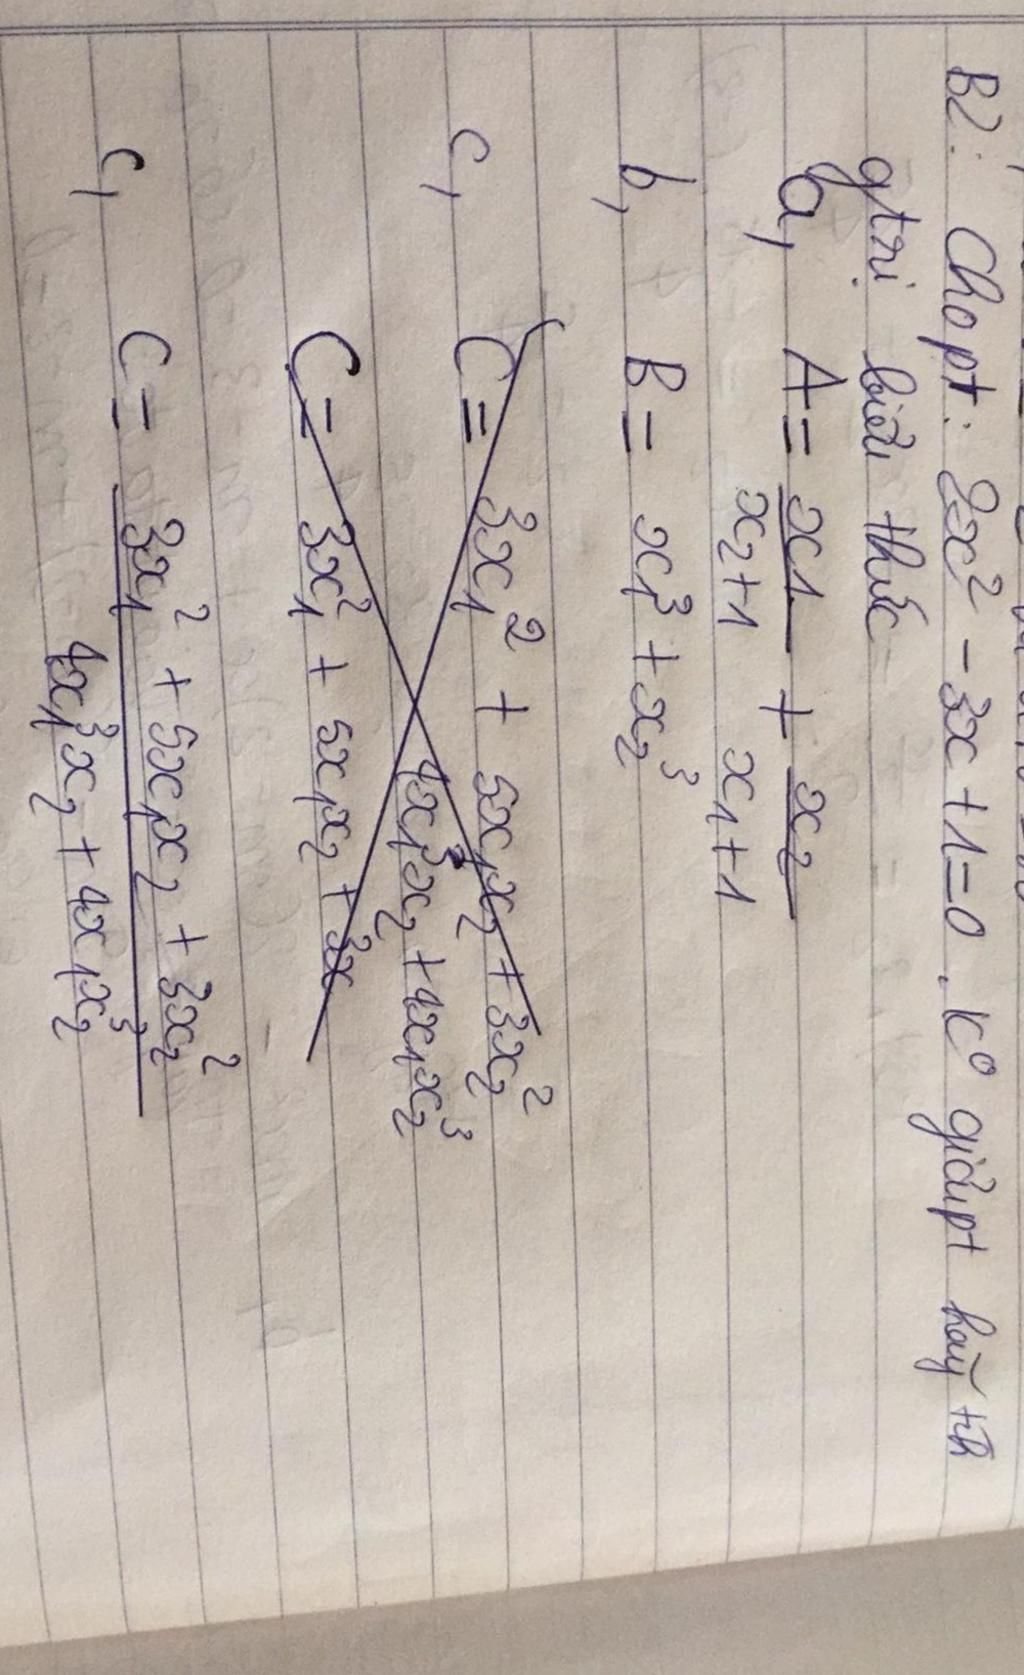 B2: Cho pt: 2x² - 3x + 1 = 0. K⁰ giải pt hãy tih
gtrị biểu thức
a, A = x1/(x₂+1) + x₂/(x₁+1)
b, B = x₁³ + x₂³
c, C = 3x₁² + 5x₁x₂ + 3x₂²
4x₁³x₂ + 4x₁x₂³
C = 3x₁² + 5x₁x₂ + 3x
c, C = (3x₁² + 5x₁x₂ + 3x₂²)/(4x₁³x₂ + 4x₁x₂³)